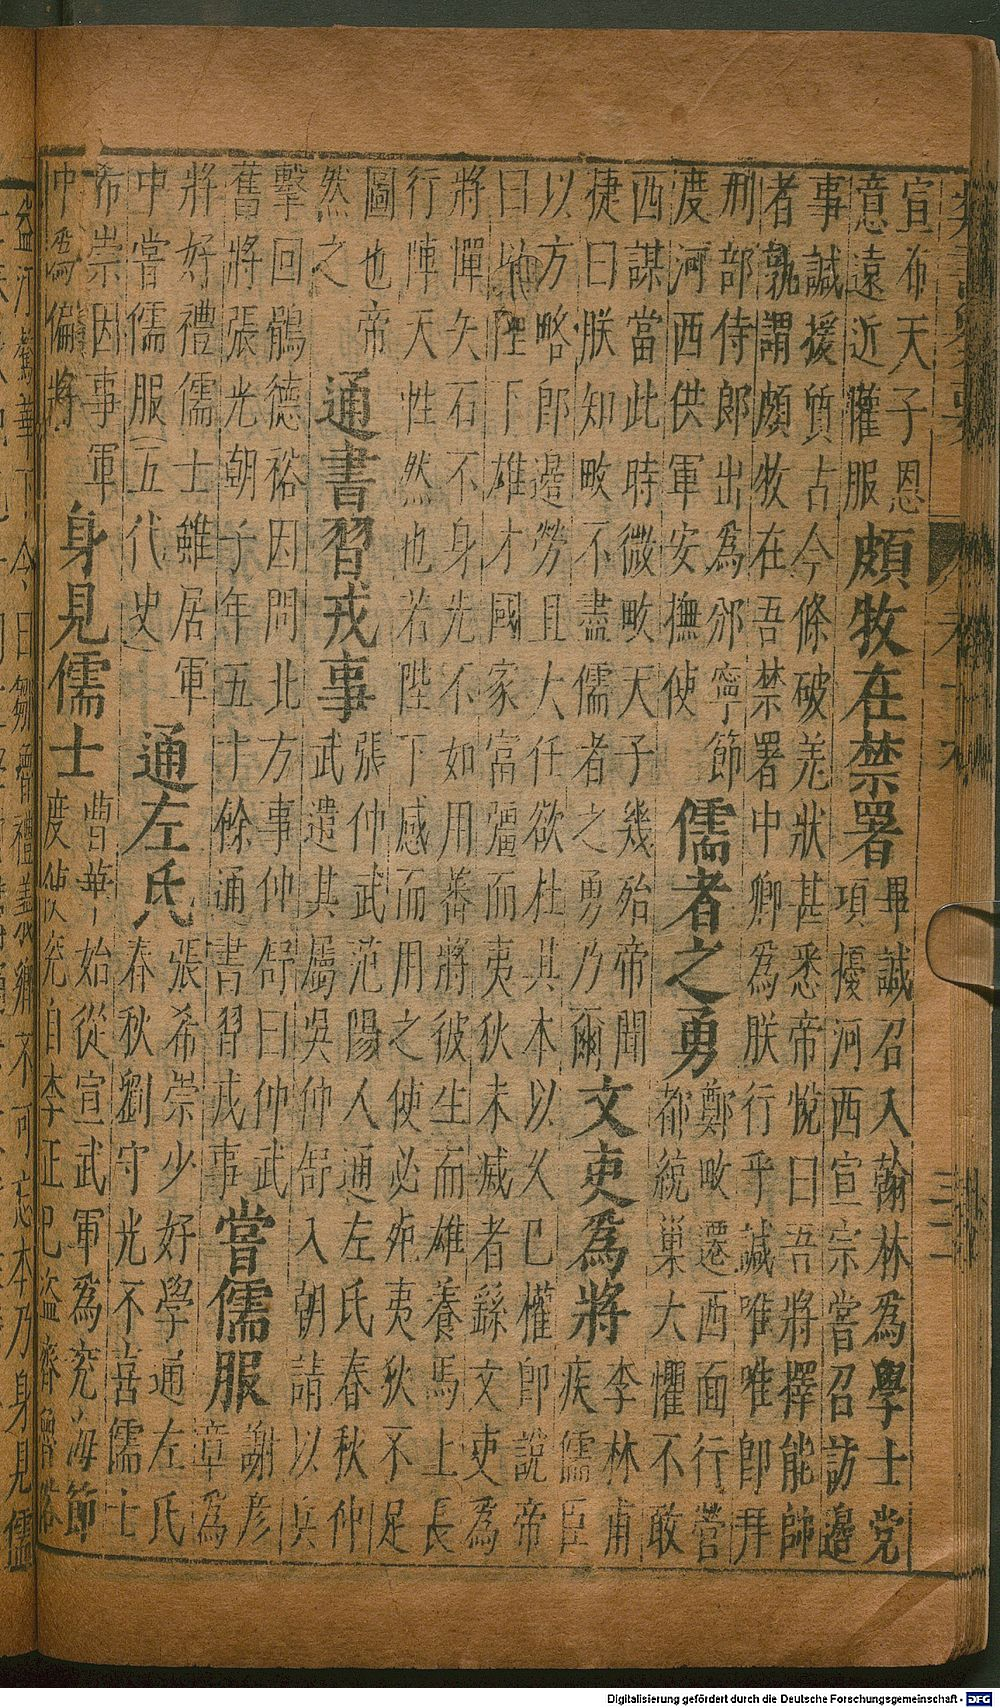 宣布天子恩
意遠近懽服
頗牧在禁署
畢諴召入翰林爲學士党
項擾河西宣宗嘗召訪邉
事諴援質古今條破羌狀甚悉帝悅曰吾將擇能帥
者孰謂頗牧在吾禁署中卿爲朕行乎諴唯唯即拜
刑部侍郎出為邠寧節
度河西供軍安撫使
儒者之勇
鄭畋遷西面行營
都統巢大懼不敢
西謀當此時微畋天子幾殆帝聞
捷曰朕知畋不盡儒者之勇乃爾
文吏爲將
李林甫
疾儒臣
以方略郎邉勞且大任欲杜其本以久巳權即說帝
曰以陛下雄才國家富彊而夷狄未滅者繇文吏爲
將憚矢石不身先不如用蕃將彼生而雄養馬上長
行陣天性然也若陛下感而用之使必死夷狄不足
圖也帝
然之
通書習戎事
張仲武范陽人通左氏春秋仲
武遣其屬吳仲舒入朝請以兵
擊回鶻德裕因問北方事仲舒曰仲武
舊將張光朝子年五十餘通書習戎事
嘗儒服
謝彥
章爲
將好禮儒士雖居軍
中嘗儒服(五代史)
通左氏
張希崇少好學通左氏
春秋劉守光不喜儒士
希崇因事軍
中爲偏將
身見儒士
曹華始從宣武軍爲兖海節
度使兖自李正巳盜齊魯俗
華下令曰鄒魯禮義鄉不可忘本乃身見儒